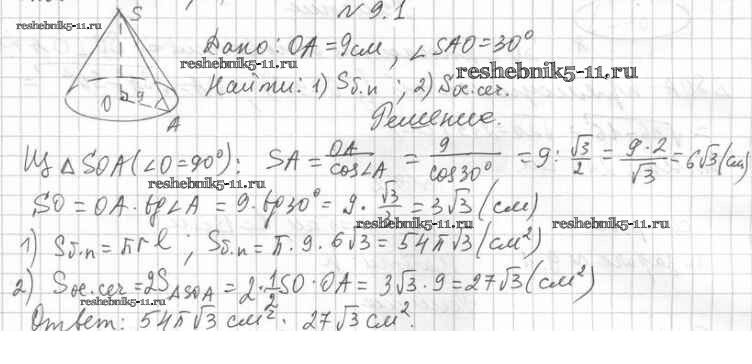 № 9.1
S
reshebnik5-11.ru
Дано: OA = 9 см, ∠SAO = 30°
reshebnik5-11.ru
reshebnik5-11.ru
Найти: 1) Sб.п ; 2) Sос.сеч.
O 9 A
Решение.
reshebnik5-11.ru
Из △SOA (∠O = 90°): SA = OA/cos∠A = 9/cos30° = 9 : √3/2 = 9·2/√3 = 6√3 (см)
reshebnik5-11.ru
SO = OA · tg∠A = 9 · tg30° = 9 · √3/3 = 3√3 (см)
reshebnik5-11.ru
reshebnik5-11.ru
1) Sб.п = πrl ; Sб.п = π · 9 · 6√3 = 54π√3 (см²)
2) Sос.сеч = 2S△SOA = 2 · 1/2 SO · OA = 3√3 · 9 = 27√3 (см²)
reshebnik5-11.ru
Ответ: 54π√3 см². 27√3 см².